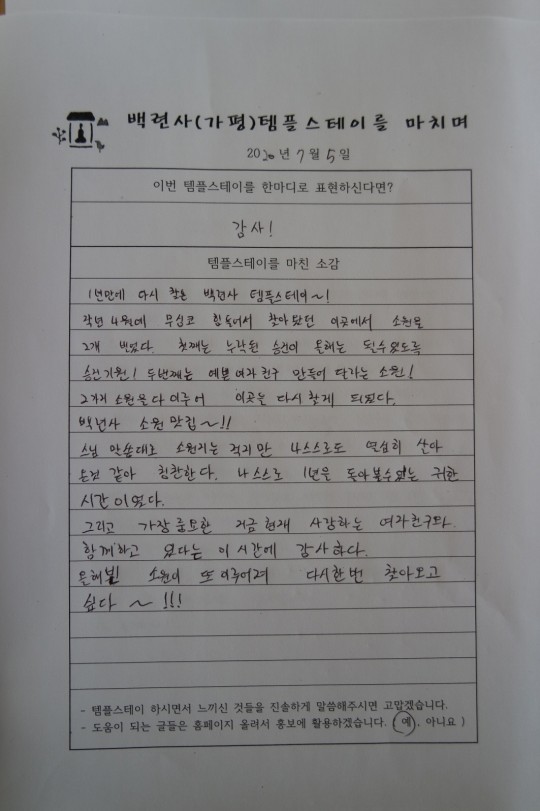 백련사(가평)템플스테이를 마치며
2020년 7월 5일
이번 템플스테이를 한마디로 표현하신다면?
감사!
템플스테이를 마친 소감
1년만에 다시 찾은 백련사 템플스테이~!
작년 4월에 무심코 힘들어서 찾아왔던 이곳에서 소원을
2개 빌었다. 첫째는 누락된 승진이 올해는 될수있도록
승진기원! 두번째는 예쁜 여자친구 만들어 달라는 소원!
2가지 소원을 다 이루어 이곳을 다시 찾게 되었다.
백련사 소원 맛집~!!
스님 말씀대로 소원지는 적지만 나 스스로도 열심히 살아
온것 같아 칭찬한다. 나 스스로 1년을 돌아볼수있는 귀한
시간이었다.
그리고 가장 중요한 지금 현재 사랑하는 여자친구와
함께하고 있다는 이 시간에 감사하다.
올해빌 소원이 또 이루어져 다시한번 찾아오고
싶다 ~ !!!
- 템플스테이 하시면서 느끼신 것들을 진솔하게 말씀해주시면 고맙겠습니다.
- 도움이 되는 글들은 홈페이지 올려서 홍보에 활용하겠습니다. (예, 아니요 )